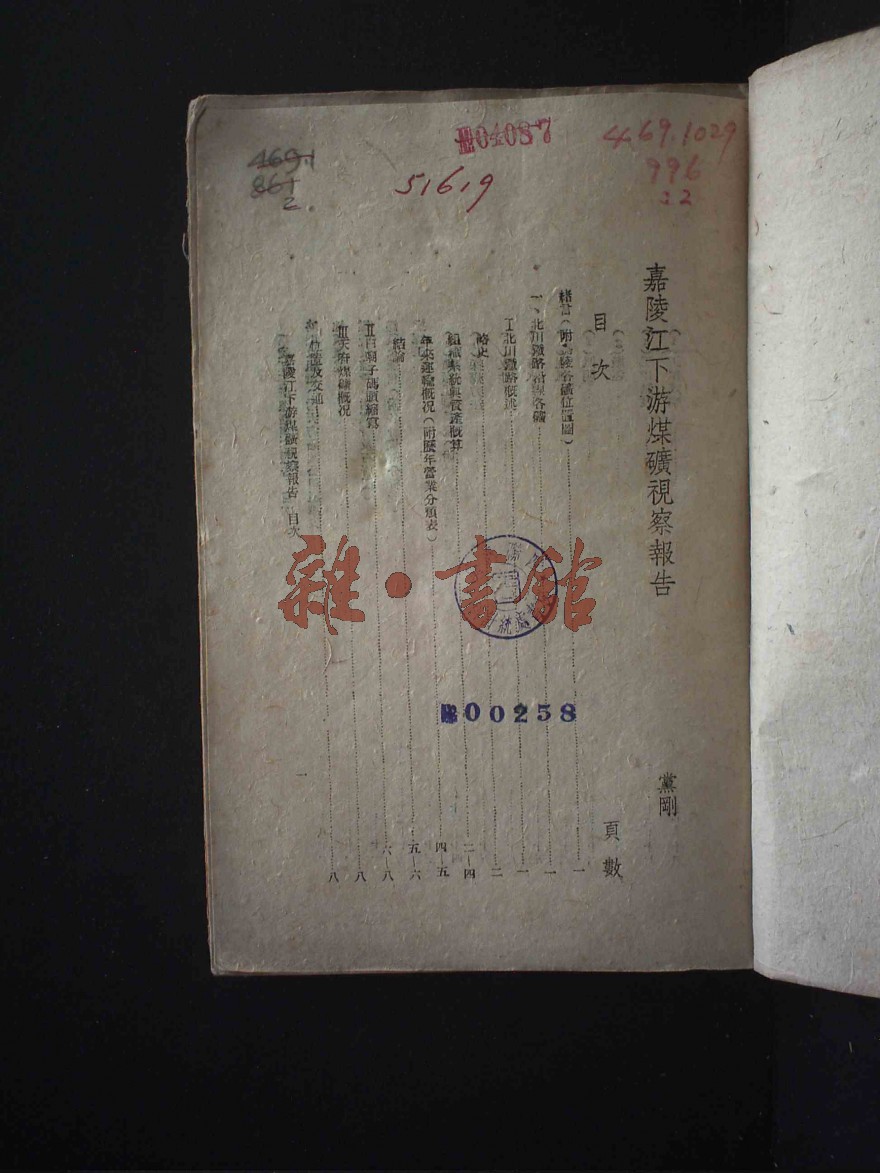 04087
469.1029
996
:2
469.1
861
2.
516.9
嘉陵江下游煤礦視察報告
黨剛
目次
頁數
緒言(附嘉陵各礦位置圖) 一
一、北川鐵路沿線各礦 一
I北川鐵路概述 一
略史 二
組織系統與資產概算 二—四
年來運輸概况(附歷年營業分類表) 四—五
結論 五—六
II白廟子碼頭縮寫 六—八
III天府煤礦概况 八
位置及交通 八
嘉陵江下游煤礦視察報告 目次
一
雜·書館
00258